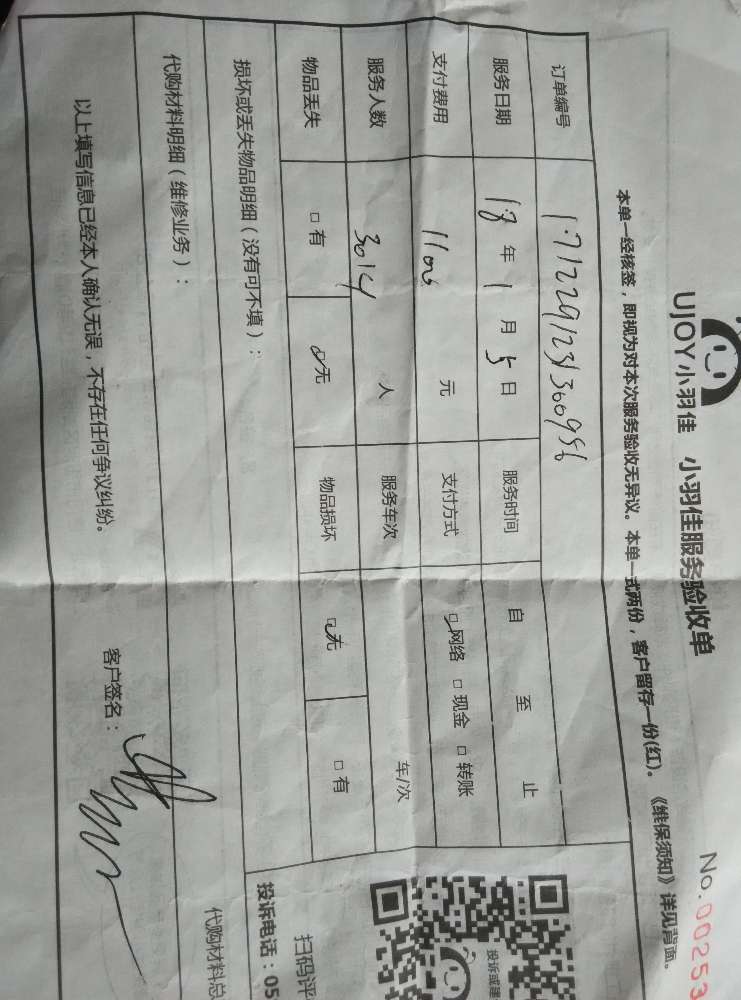 No.00253
UJOY小羽佳 小羽佳服务验收单
本单一经核签，即视为对本次服务验收无异议。本单一式两份，客户留存一份(红)。《维保须知》详见背面。
订单编号
服务日期 年 1 月 5 日 服务时间 自 至 止
支付费用 元 支付方式 □网络 □现金 □转账
服务人数 人 服务车次 年/次
物品丢失 □有 □无 物品损坏 □无 □有
损坏或丢失物品明细（没有可不填）：
代购材料明细（维修业务）：
代购材料总
以上填写信息已经本人确认无误，不存在任何争议纠纷。
客户签名：
投诉或建
扫码评
投诉电话：05